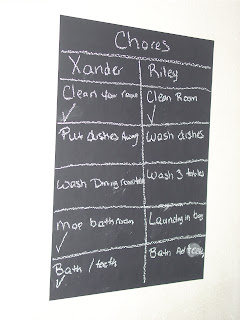 Chores
Xander Riley
Clean your room Clean Room
Put dishes Away Wash dishes
Wash Dining room table Wash 3 tables
Mop bathroom Laundry in bag
Bath / teeth Bath And teeth